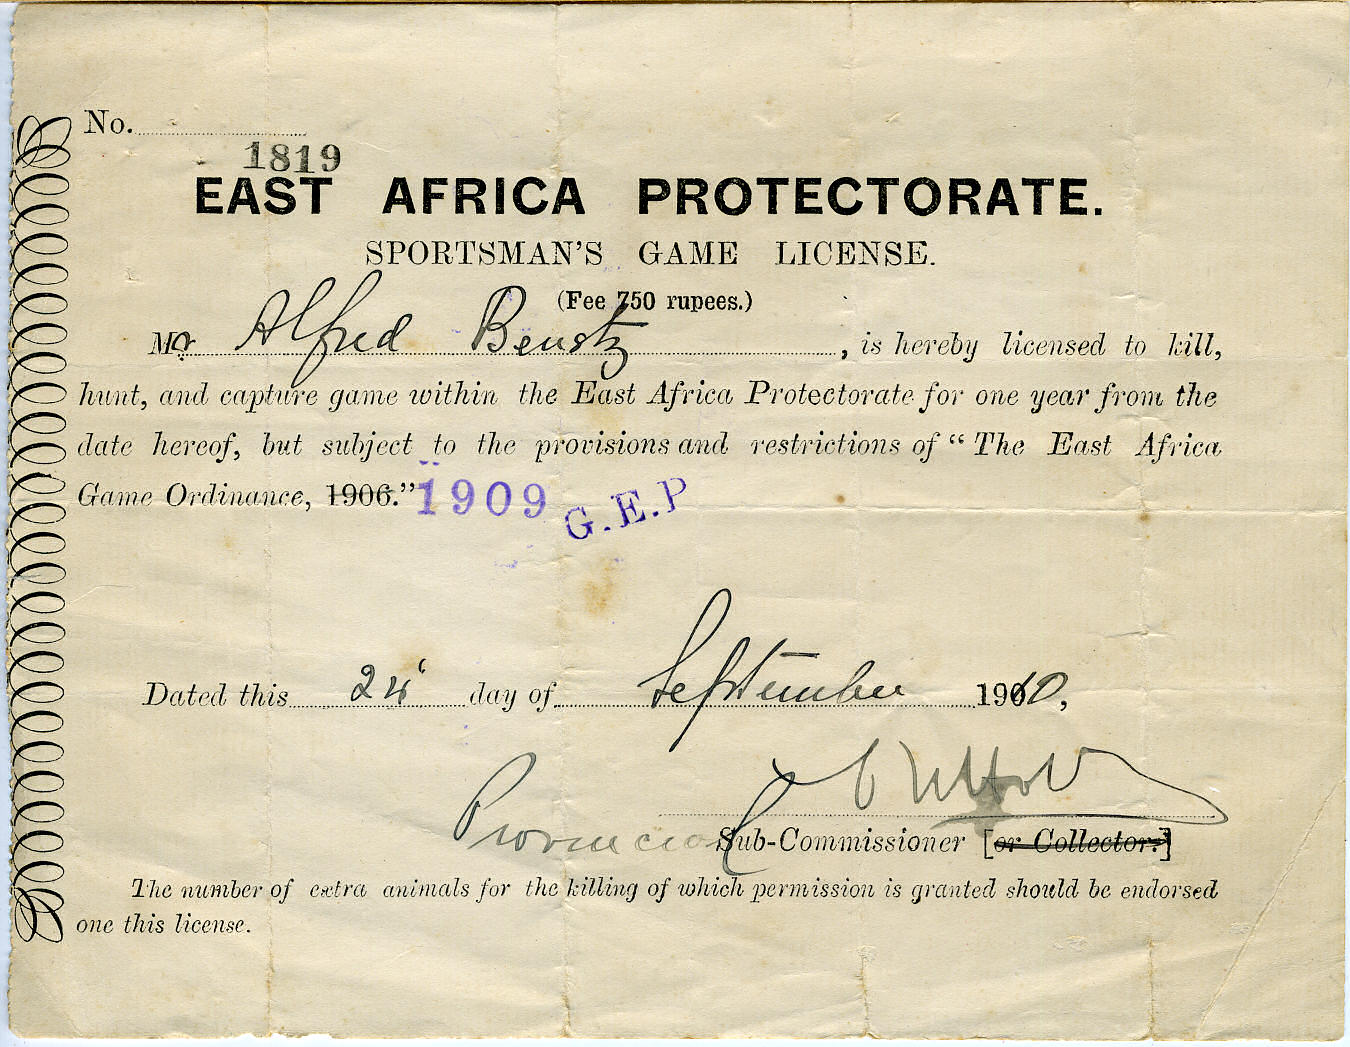 No.
1819
EAST AFRICA PROTECTORATE.
SPORTSMAN'S GAME LICENSE.
(Fee 750 rupees.)
Mr Alfred Beustz, is hereby licensed to kill,
hunt, and capture game within the East Africa Protectorate for one year from the
date hereof, but subject to the provisions and restrictions of “The East Africa
Game Ordinance, 1906.” 1909 G.E.P
Dated this 24 day of September 1910,
Provincial Sub-Commissioner [or Collector.]
The number of extra animals for the killing of which permission is granted should be endorsed
one this license.